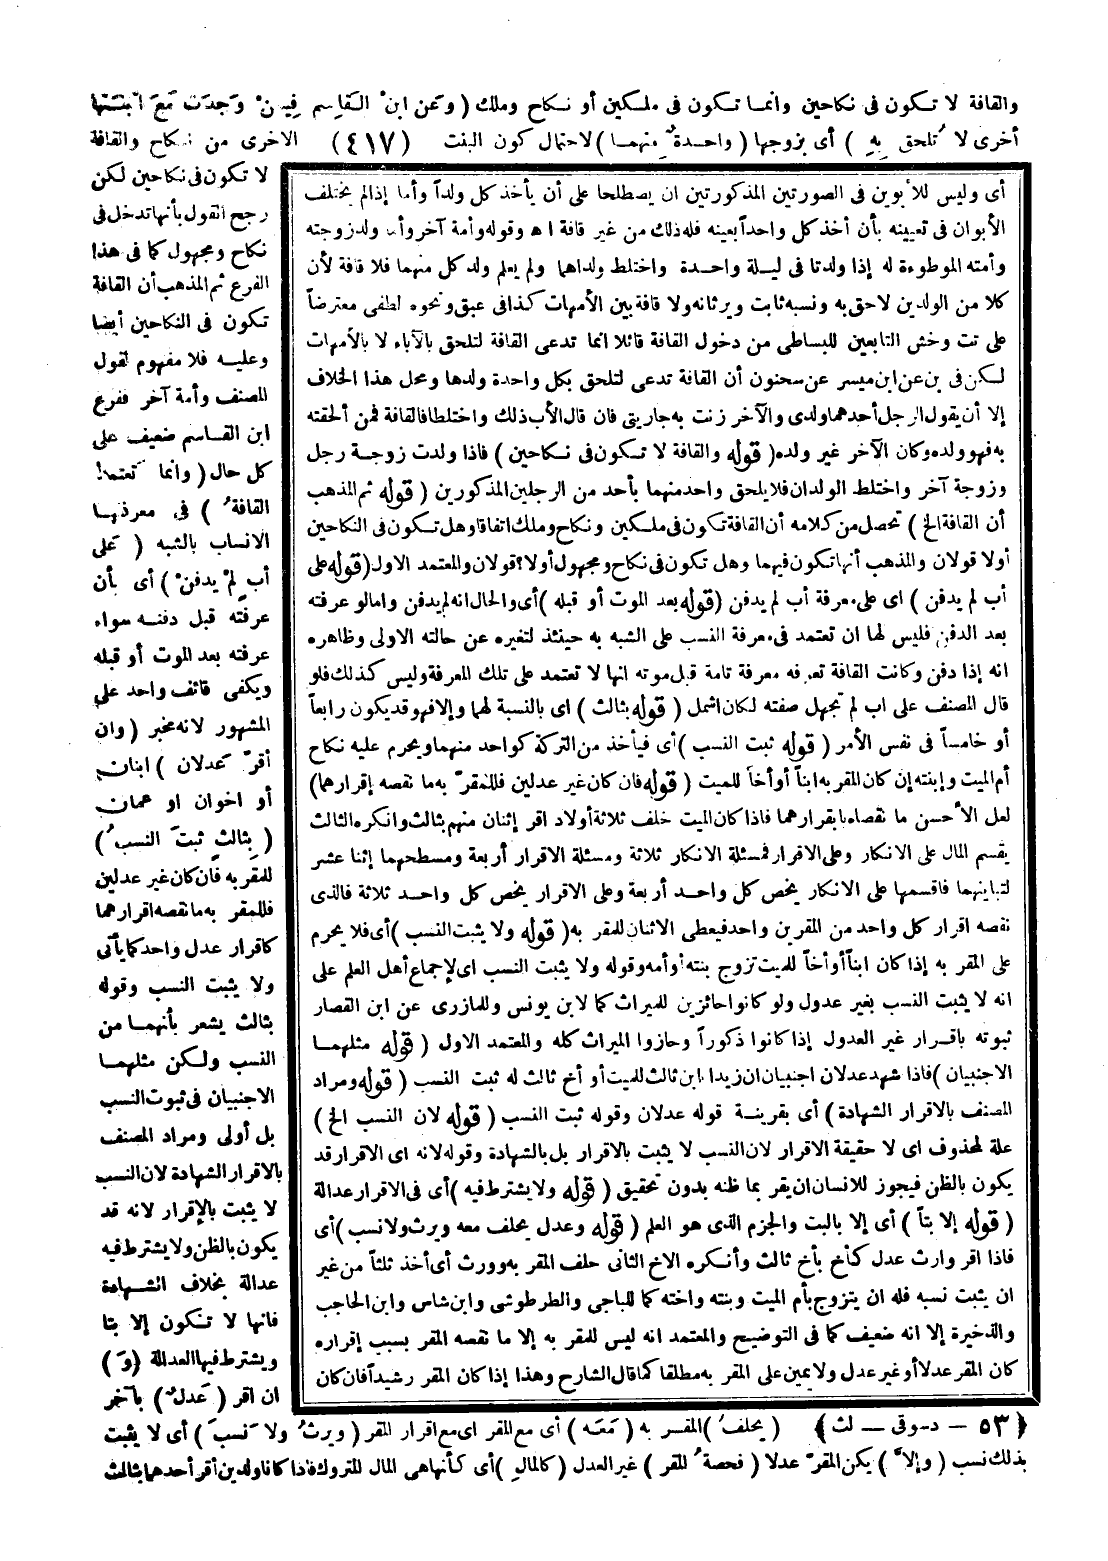 والقافة لا تكون فى نكاحين وانما تكون فى ملكين أو نكاح وملك ( وَعن ابنْ القَاسِم فِيمنْ وَجدَت مَعَ ابنَتها
أخرى لا تُلحق بِهِ ) أى بزوجها ( واحدةٌ مِنهما ) لاحتمال كون البنت (٤١٧) الاخرى من نكاح والقافة
لا تكون فى نكاحين لكن
رجح القول بأنها تدخل فى
نكاح ومجهول كما فى هذا
الفرع ثم المذهب أن القافة
تكون فى النكاحين أيضا
وعليه فلا مفهوم لقول
المصنف وأمة آخر ففرع
ابن القاسم ضعيف على
كل حال ( وانما تَعتمدُ
القافةُ ) فى معرفتها
الانساب بالشبه ( عَلى
أب لمْ يدفنْ ) أى بأن
عرفته قبل دفنه سواء
عرفته بعد الموت أو قبله
ويكفى قائف واحد على
المشهور لانه مخبر ( وان
أقرّ عَدلان ) ابنان
أو اخوان او عمان
( بِثالثٍ ثبتَ النسبُ )
للمقر به فان كان غير عدلين
فللمقر به ما نقصه اقرارهما
كاقرار عدل واحد كما يأتى
ولا يثبت النسب وقوله
بثالث يشعر بأنهما من
النسب ولكن مثلهما
الاجنبيان فى ثبوت النسب
بل أولى ومراد المصنف
بالاقرار الشهادة لان النسب
لا يثبت بالإقرار لانه قد
يكون بالظن ولا يشترط فيه
عدالة بخلاف الشهادة
فانها لا تكون إلا بتا
ويشترط فيها العدالة (وَ )
ان اقر ( عَدلٌ ) بآخر
أى وليس للأبوين فى الصورتين المذكورتين ان يصطلحا على أن يأخذ كل ولداً وأما إذا لم يختلف
الأبوان فى تعيينه بأن أخذ كل واحداً بعينه فله ذلك من غير قافة اه وقوله وأمة آخر وأما ولد زوجته
وأمته الموطوءة له إذا ولدتا فى ليلة واحدة واختلط ولداهما ولم يعلم ولد كل منهما فلا قافة لأن
كلا من الولدين لاحق به ونسبه ثابت ويرثانه ولا قافة بين الأمهات كذا فى عبق ونحوه لطفى معترضاً
على تت وخش التابعين للبساطى من دخول القافة قائلا انما تدعى القافة لتلحق بالآباء لا بالأمهات
لكن فى بن عن ابن ميسر عن سحنون أن القافة تدعى لتلحق بكل واحدة ولدها ومحل هذا الخلاف
إلا أن يقول الرجل أحدهما ولدى والآخر زنت به جاريتى فان قال الأب ذلك واختلطا فالقافة فمن ألحقته
به فهو ولده وكان الآخر غير ولده ( قوله والقافة لا تكون فى نكاحين ) فاذا ولدت زوجة رجل
وزوجة آخر واختلط الولدان فلا يلحق واحد منهما بأحد من الرجلين المذكورين ( قوله ثم المذهب
أن القافة الخ ) تحصل من كلامه أن القافة تكون فى ملكين ونكاح وملك اتفاقا وهل تكون فى النكاحين
أولا قولان والمذهب أنها تكون فيهما وهل تكون فى نكاح ومجهول أولا؟ قولان والمعتمد الاول (قوله على
أب لم يدفن ) اى على معرفة أب لم يدفن (قوله بعد الموت أو قبله ) أى والحال انه لم يدفن واما لو عرفته
بعد الدفن فليس لها ان تعتمد فى معرفة النسب على الشبه به حينئذ لتغيره عن حالته الاولى وظاهره
انه إذا دفن وكانت القافة تعرفه معرفة تامة قبل موته انها لا تعتمد على تلك المعرفة وليس كذلك فلو
قال المصنف على اب لم تجهل صفته لكان اشمل ( قوله بثالث ) اى بالنسبة لهما وإلا فهو قد يكون رابعاً
أو خامساً فى نفس الأمر ( قوله ثبت النسب ) أى فيأخذ من التركة كواحد منهما ويحرم عليه نكاح
أم الميت وإبنته إن كان المقر به ابناً أو أخاً للميت ( قوله فان كان غير عدلين فللمقرّ به ما نقصه إقرارهما)
لعل الأحسن ما نقصاه باقرارهما فاذا كان الميت خلف ثلاثة أولاد اقر إثنان منهم بثالث وانكره الثالث
يقسم المال على الانكار وعلى الاقرار فمسئلة الانكار ثلاثة ومسئلة الاقرار أربعة ومسطحهما إثنا عشر
لتباينهما فاقسمها على الانكار يخص كل واحد أربعة وعلى الاقرار يخص كل واحد ثلاثة فالذى
نقصه اقرار كل واحد من المقرين واحد فيعطى الاثنان للمقر به ( قوله ولا يثبت النسب ) أى فلا يحرم
على المقر به إذا كان ابناً أو أخاً للميت تزوج بنته أو أمه وقوله ولا يثبت النسب اى لإجماع أهل العلم على
انه لا يثبت النسب بغير عدول ولو كانوا حائزين للميراث كما لابن يونس وللمازرى عن ابن القصار
ثبوته باقرار غير العدول إذا كانوا ذكوراً وحازوا الميراث كله والمعتمد الاول ( قوله مثلهما
الاجنبيان ) فاذا شهد عدلان اجنبيان ان زيدا ابن ثالث للميت أو أخ ثالث له ثبت النسب ( قوله ومراد
المصنف بالاقرار الشهادة ) أى بقرينة قوله عدلان وقوله ثبت النسب ( قوله لان النسب الخ )
علة لمحذوف اى لا حقيقة الاقرار لان النسب لا يثبت بالاقرار بل بالشهادة وقوله لانه اى الاقرار قد
يكون بالظن فيجوز للانسان ان يقر بما ظنه بدون تحقيق ( قوله ولا يشترط فيه ) أى فى الاقرار عدالة
( قوله إلا بتاً ) أى إلا بالبت والجزم الذى هو العلم ( قوله وعدل يحلف معه ويرث ولا نسب ) أى
فاذا اقر وارث عدل كأخ بأخ ثالث وأنكره الاخ الثانى حلف المقر به وورث أى أخذ ثلثاً من غير
ان يثبت نسبه فله ان يتزوج بأم الميت وبنته واخته كما للباجى والطرطوشى وابن شاس وابن الحاجب
والذخيرة إلا انه ضعيف كما فى التوضيح والمعتمد انه ليس للمقر به إلا ما نقصه المقر بسبب إقراره
كان المقر عدلا أو غير عدل ولا يمين على المقر به مطلقا كما قال الشارح وهذا إذا كان المقر رشيداً فان كان
﴿ ٥٣ — دسوقى — لث ﴾ ( يحلفُ ) المقر به ( مَعَه ) أى مع المقر اى مع اقرار المقر ( ويرثُ ولا نَسبَ ) أى لا يثبت
بذلك نسب ( وإلاَّ ) يكن المقرّ عدلا ( فحصةُ المقر ) غير العدل ( كالمالِ ) أى كأنها هى المال المتروك فاذا كانا ولدين أقر أحدهما بثالث